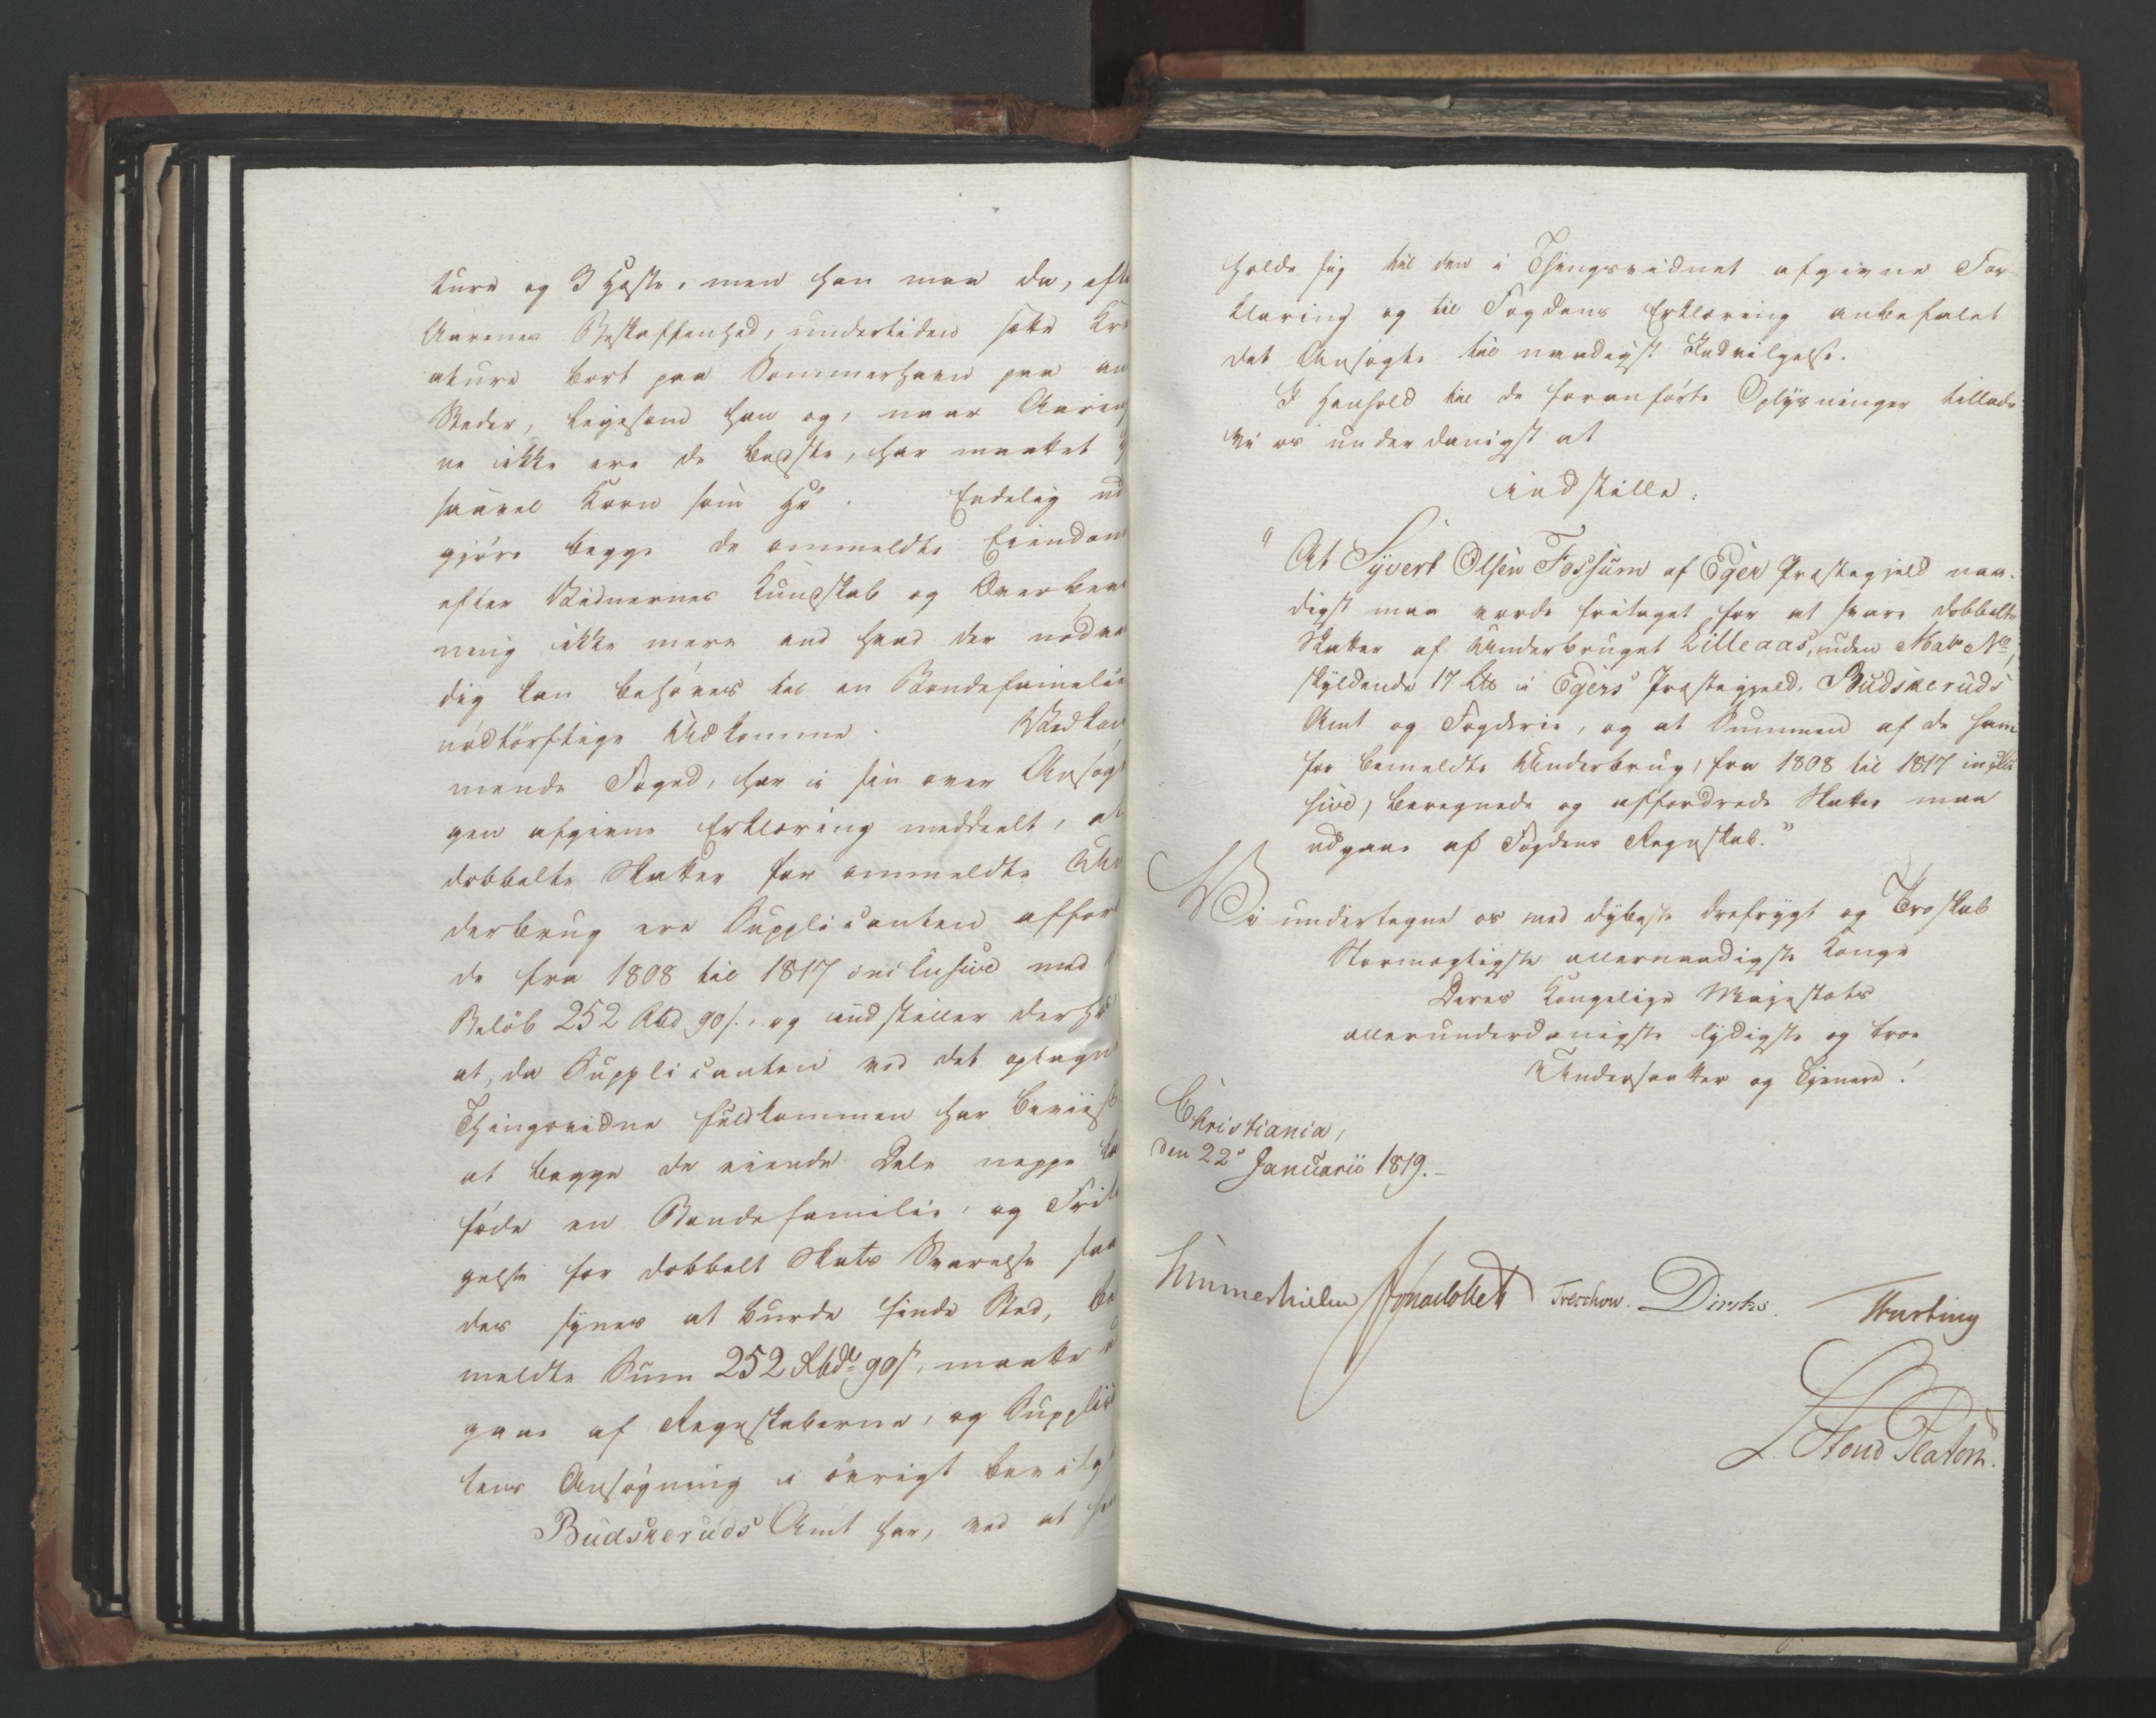 ture og 3 Heste, men han maa da, efte
Aarenes Beskaffenhed, undertiden sætte Kre
ature bort paa Sommerhavn paa an
Steder, ligesom han og, naar Aarin
ne ikke ere de bedste, har maattet
saavel Korn som Hö. Endelig ud
gjöre begge de ommeldte Eiendom
efter Vidnernes Kundskab og Overbev
ning ikke mere end hvad der nödve
dig kan behöves til en Bondefamilie
nödtörftige Udkomme. Vedkom
mende Foged, har i sin over Ansög
gen afgivne Erklæring meddeelt, at
dobbelte Skatter for ommeldte Un
derbrug ere Supplicanten affor
de fra 1808 til 1817 inclusive med
Belöb 252 Rbd 90 s., og indstiller derhos
at, da Supplicanten ved det optagn
Thingsvidne fuldkommen har beviist
at begge de eiende Dele neppe kan
föde en Bondefamilie, og Frit
gelse for dobbelt Skats Svarelse saa
des synes at burde finde Sted, be
meldte Sum 252 Rbdr 90 s, maatte
gaae af Regnskaberne, og Supplic
tens Ansögning i övrigt bevilg
Budskeruds Amt har, ved at hen
holde sig til den i Thingsvidnet afgivne For-
klaring og til Fogdens Erklæring anbefalet
det Ansögte til naadigst Indvilgelse.
I Henhold til de foranförte Oplysninger tillade
Vi os underdanigst at
indstille:
"At Syvert Olsen Fossum af Eger Præstegjeld naa-
digst maa vorde fritaget for at svare dobbelte
Skatter af Underbruget Lilleaas, uden Matr No,
skyldende 17 Lts i Egers Præstegjeld, Budskeruds
Amt og Fogderie, og at Summen af de ham
for bemeldte Underbrug, fra 1808 til 1817 inclu
sive, beregnede og affordrede Skatter maa
udgaae af Fogdens Regnskab."
Vi undertegne os med dybeste Ærefrygt og Troskab
Stormægtigste allernaadigste Konge
Deres Kongelige Majestæts
allerunderdanigste lydigste og troe
Undersaatter og Tjenere!
Christiania,
den 22e Januarii 1819.-
Hummerhielm Treschow. Diriks. Harbing
L. Stoud Platou.